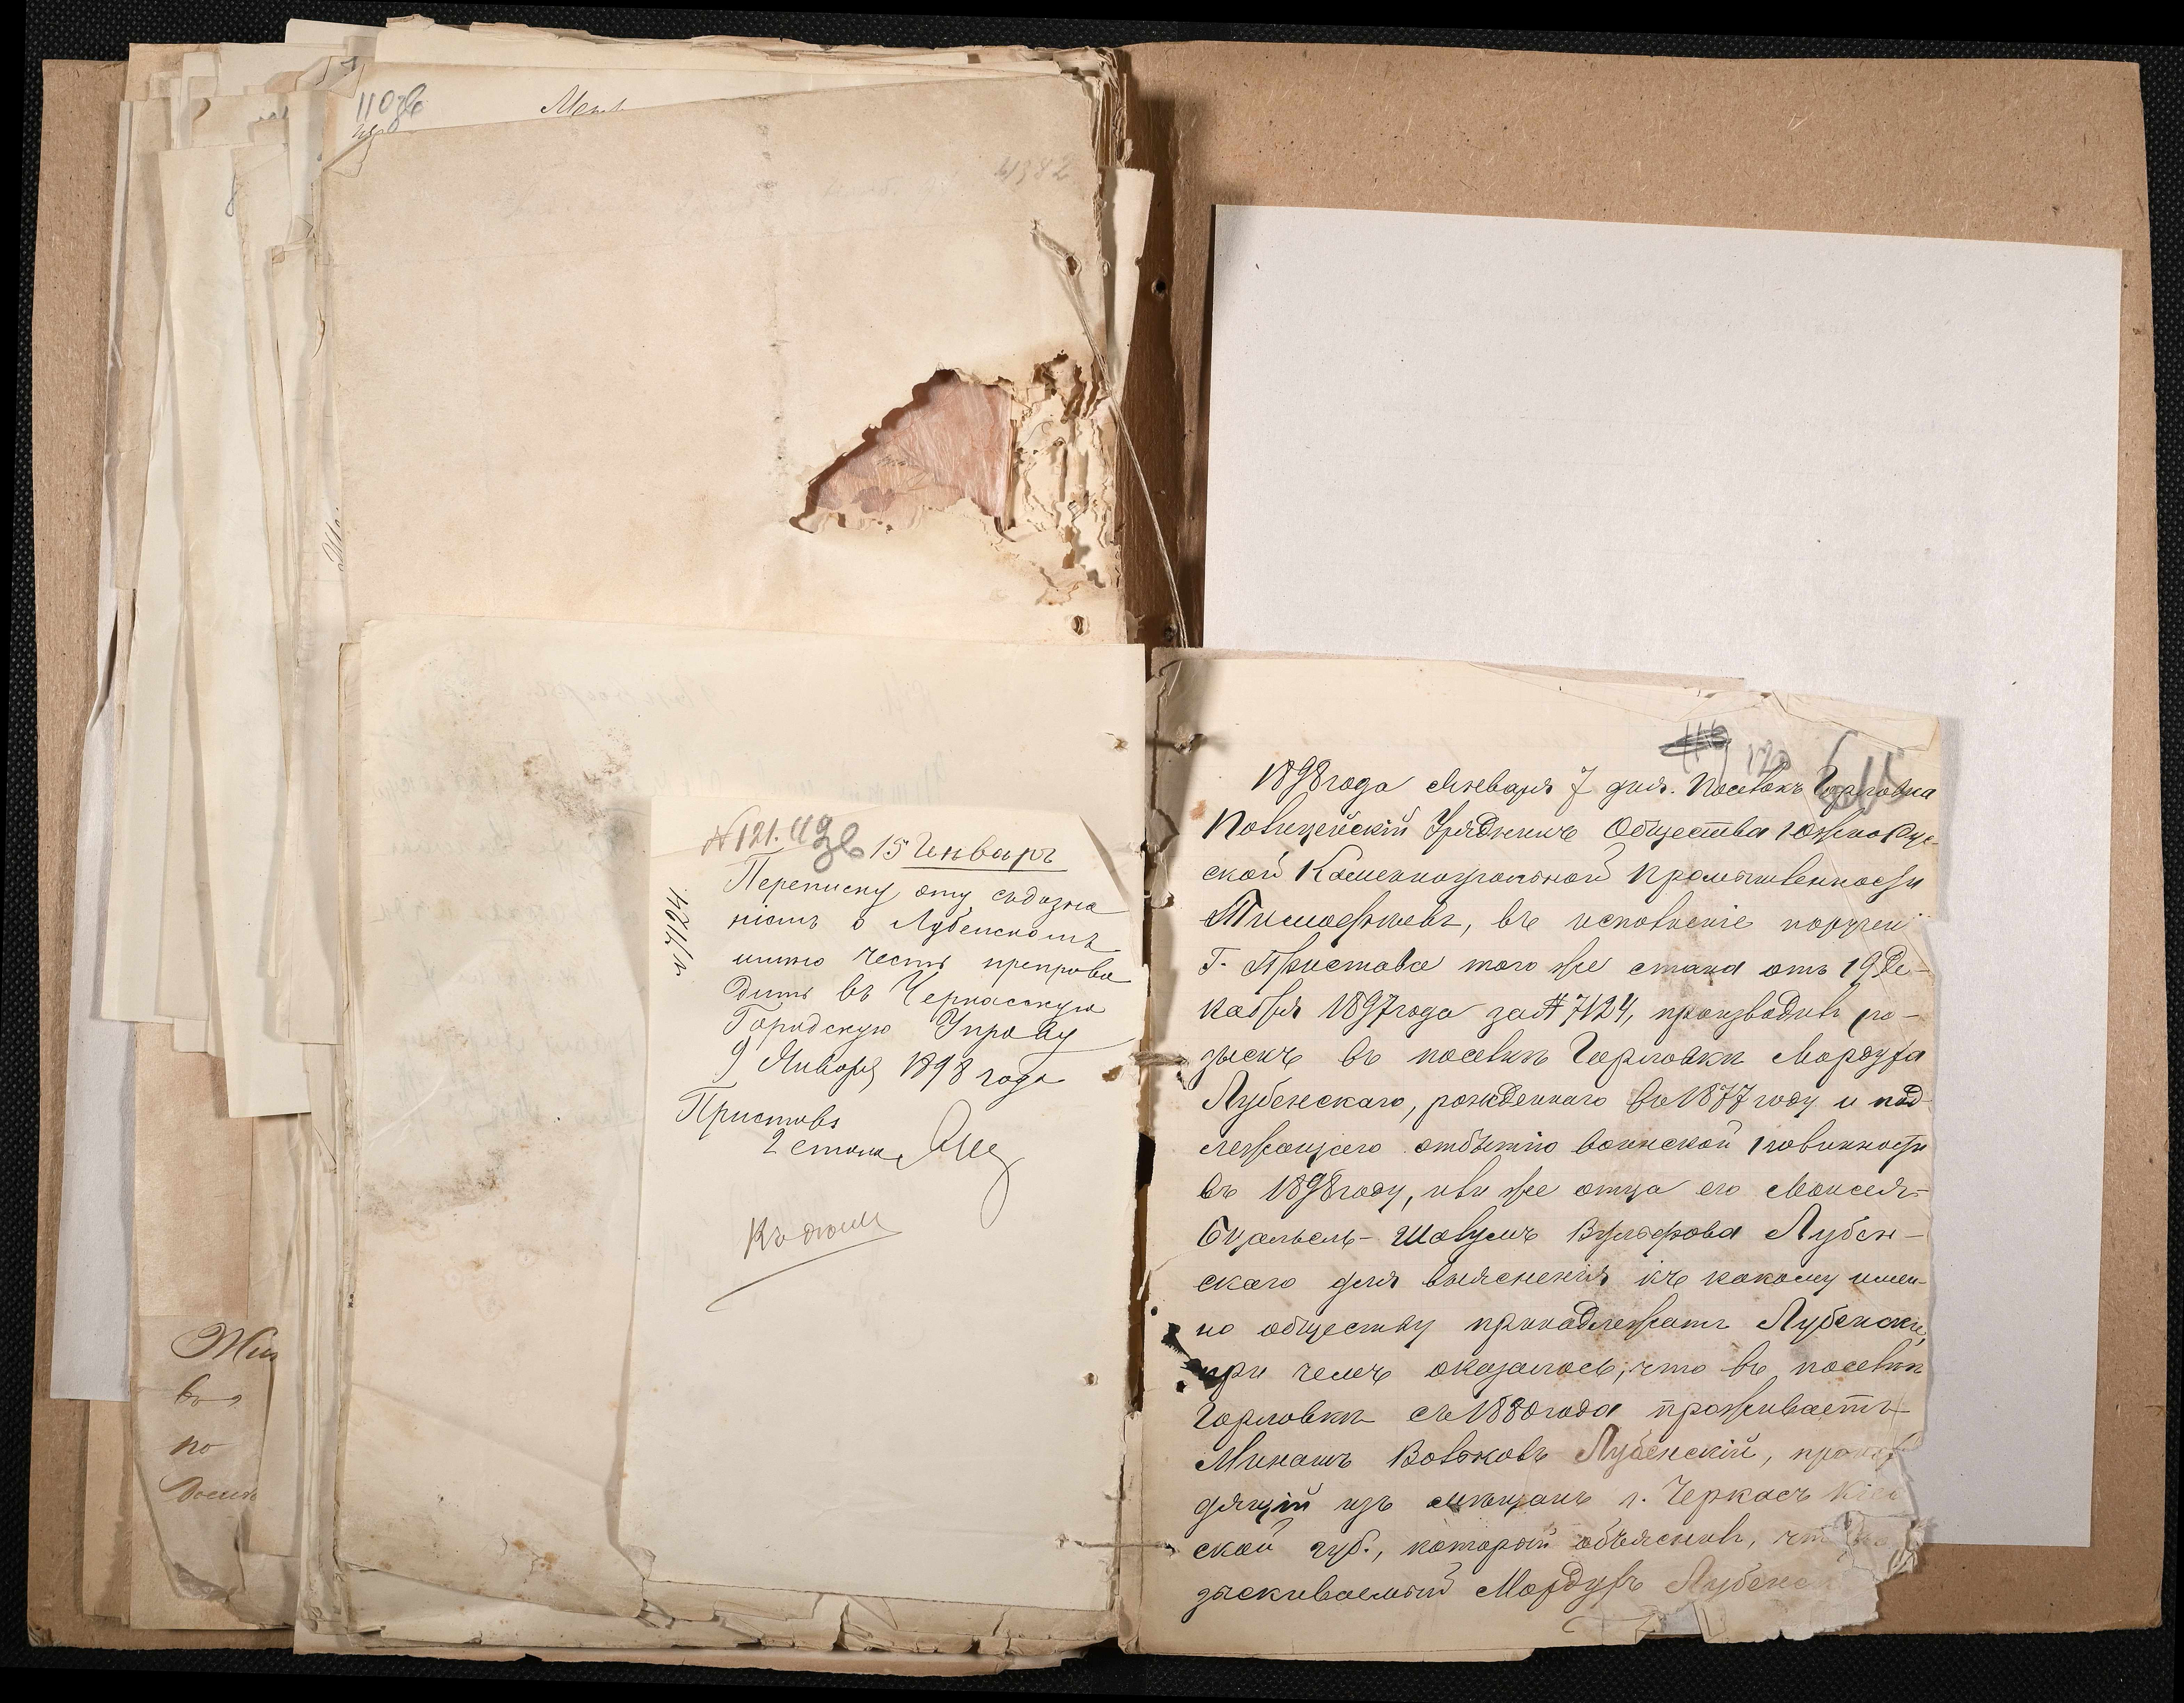 4382
№ 121. 15 Январъ
№ 7124
Переписку эту съ дозна
ніемъ о Лубенскомъ
имѣю честь препрово
дить въ Черкасскую
Городскую Управу
9 Января 1898 года
Приставъ
2 стана
Къ дѣлу
120
1898 года Января 7 дня. Поселокъ Горловка
Полицейскій Урядникъ Общества Южно Рус-
ской Каменноугольной Промышленности
Тимофѣевъ, въ исполненіе поручен
Г. Пристава того же стана отъ 19 Де-
кабря 1897 года за № 7124, производилъ ро-
зыскъ въ поселкѣ Горловкѣ Мордуха
Лубенскаго, рожденнаго въ 1877 году и под-
лежащаго отбытію воинской повинности
въ 1898 году, или же отца его Моисея-
Шавулъ Вульфова Лубен-
скаго для выясненія къ какому имен-
но обществу принадлежатъ Лубенскіе,
при чемъ оказалось, что въ поселкѣ
Горловкѣ съ 1880 года проживаетъ
Минашъ Вольковъ Лубенскій, происхо
дящій изъ мѣщанъ г. Черкасъ Кіев
ской губ., который объяснилъ, что
зыскиваемый Мордухъ Лубенск